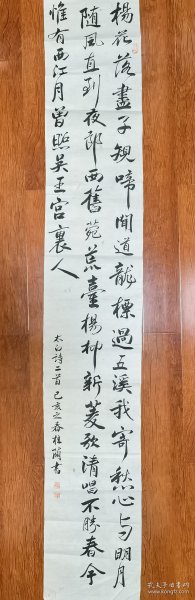 楊花落盡子規啼聞道龍標過五溪我寄愁心与明月
随風直到夜郎西舊苑荒臺楊柳新菱歌清唱不勝春今
惟有西江月曾照吴王宫裏人
太白詩二首己亥之春桂蘭書